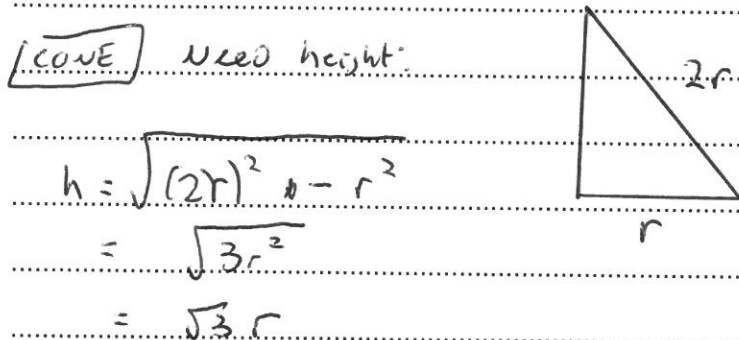 CONE Need height:
2r
h = √(2r)² - r²
r
= √3r²
= √3 r